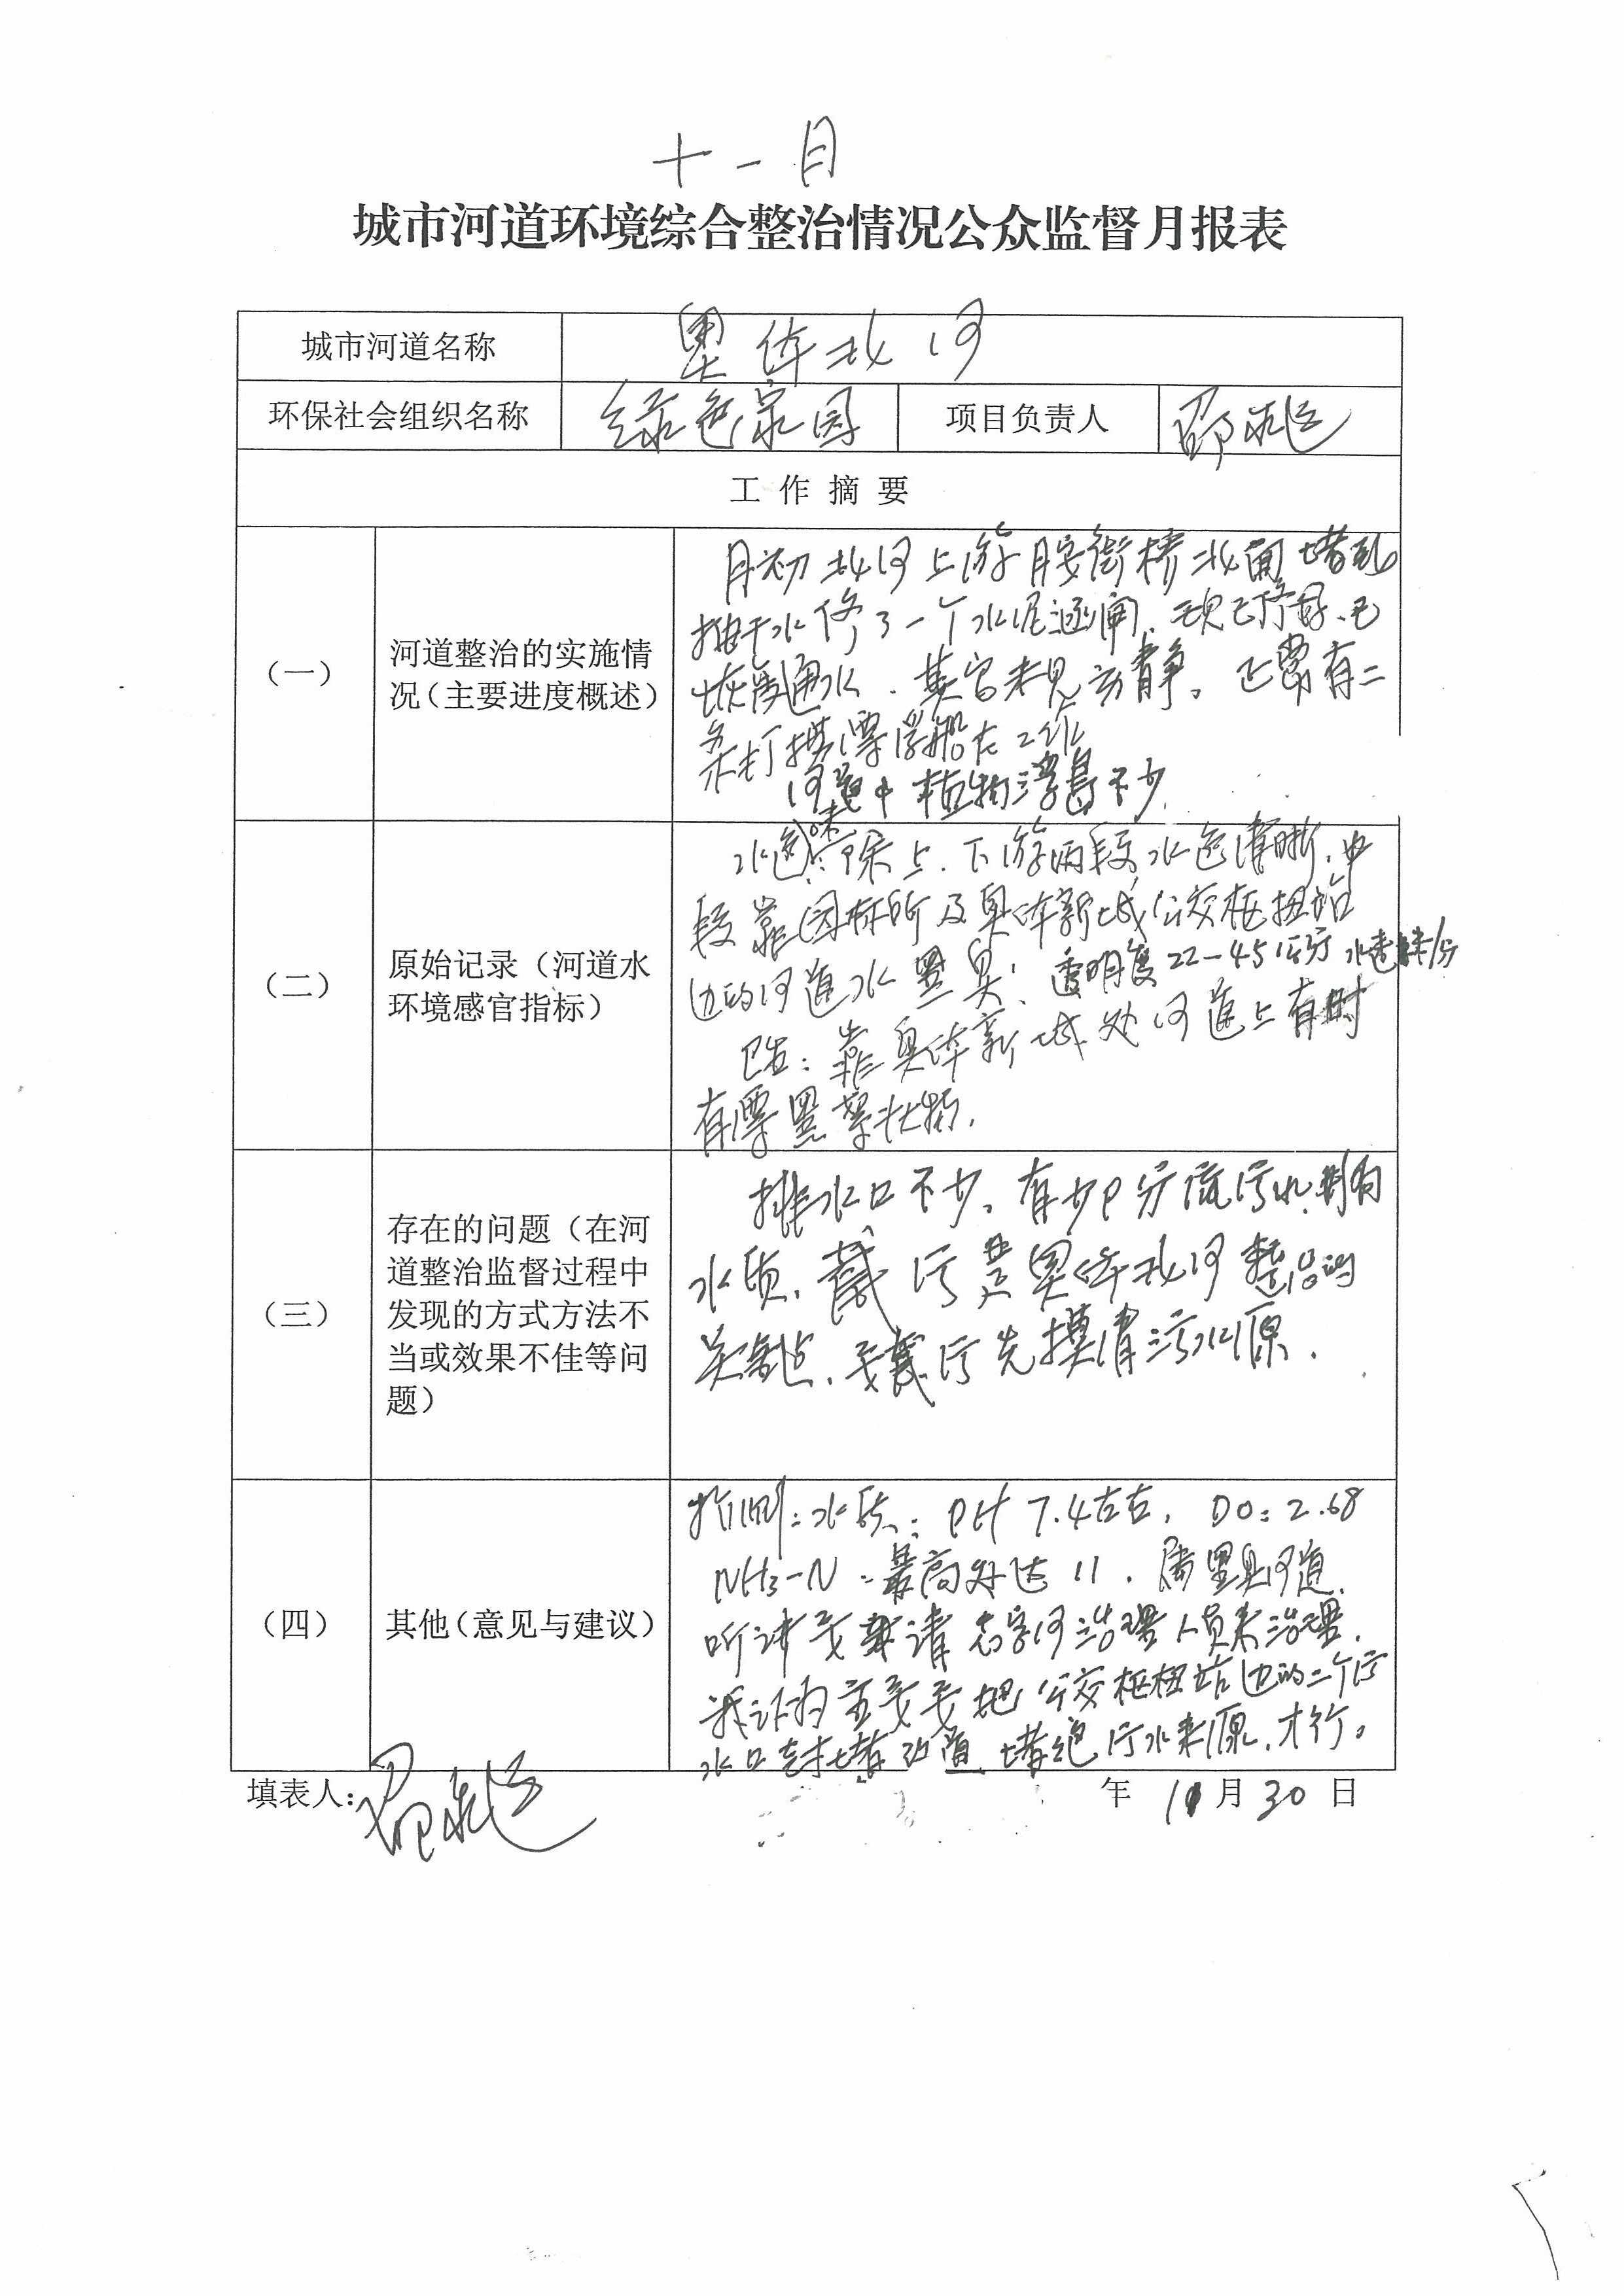 十一月
城市河道环境综合整治情况公众监督月报表
城市河道名称 奥体北河
环保社会组织名称 绿色家园 项目负责人 邵
工作摘要
(一)
河道整治的实施情
况(主要进度概述)
月初北河上游 街桥北面
抽干水修了一个水泥涵闸、现已修好、已
恢复通水. 其它未见动静。正常有二
条打捞漂浮船在工作
河道中植物浮岛不少.
(二)
原始记录(河道水
环境感官指标)
水色味:除上.下游两段水色清晰.中
段靠国标所及奥体新城公交枢扭站
边的河道水黑臭; 透明度22-45公分
:靠奥体新城处河道上有时
有漂黑絮状物.
(三)
存在的问题(在河
道整治监督过程中
发现的方式方法不
当或效果不佳等问
题)
排水口不少。有少P分流污水、影响
水质、截污是奥体北河整治的
关键、要截污先摸清污水源.
(四)
其他(意见与建议)
检测:水质: PH 7.4左右, DO: 2.68
NH3-N:最高处达 11. 属黑臭河道.
听讲要来请 河治理人员来治理.
我认为主要要把公交枢扭站边的二个污
水口封堵改道、堵绝污水来源.才行。
填表人: 邵 年 11月30日